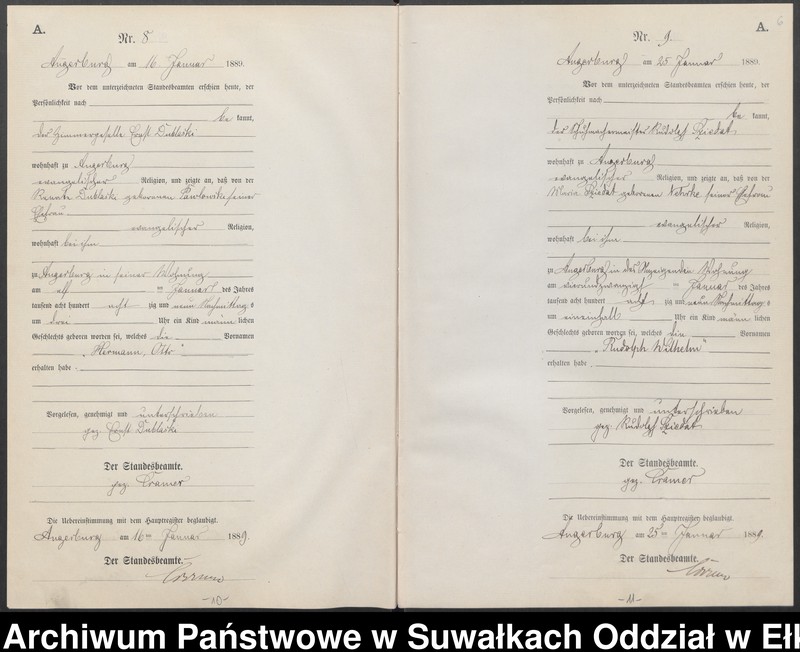 A.
Nr. 8
Angerburg am 16 Januar 1889.
Vor dem unterzeichneten Standesbeamten erschien heute, der
Persönlichkeit nach
be kannt,
der Zimmergeselle Ernst Dublaski
wohnhaft zu Angerburg
evangelischer Religion, und zeigte an, daß von der
Renate Dublaski geborenen Pawlowski seiner
Ehefrau
evangelischer Religion,
wohnhaft bei ihm
zu Angerburg in seiner Wohnung
am elf ten Januar des Jahres
tausend acht hundert acht zig und neun Nachmittags
um drei Uhr ein Kind männ lichen
Geschlechts geboren worden sei, welches die Vornamen
„Hermann, Otto"
erhalten habe.
Vorgelesen, genehmigt und unterschrieben
gez. Ernst Dublaski
Der Standesbeamte.
gez. Cramer
Die Uebereinstimmung mit dem Hauptregister beglaubigt.
Angerburg am 16ten Januar 1889.
Der Standesbeamte.
-10-
6
A.
Nr. 9.
Angerburg am 25 Januar 1889.
Vor dem unterzeichneten Standesbeamten erschien heute, der
Persönlichkeit nach
be kannt,
der Schuhmachermeister Rudolph Sziedat
wohnhaft zu Angerburg
evangelischer Religion, und zeigte an, daß von der
Maria Sziedat geborenen seiner Ehefrau
evangelischer Religion,
wohnhaft bei ihm
zu Angerburg in des Anzeigenden Wohnung
am vierundzwanzig ten Januar des Jahres
tausend acht hundert acht zig und neun Nachmittags
um eineinhalb Uhr ein Kind männ lichen
Geschlechts geboren worden sei, welches die Vornamen
„Rudolph Wilhelm"
erhalten habe.
Vorgelesen, genehmigt und unterschrieben
gez. Rudolph Sziedat
Der Standesbeamte.
gez. Cramer
Die Uebereinstimmung mit dem Hauptregister beglaubigt.
Angerburg am 25ten Januar 1889.
Der Standesbeamte.
-11-
Archiwum Państwowe w Suwałkach Oddział w Ełk